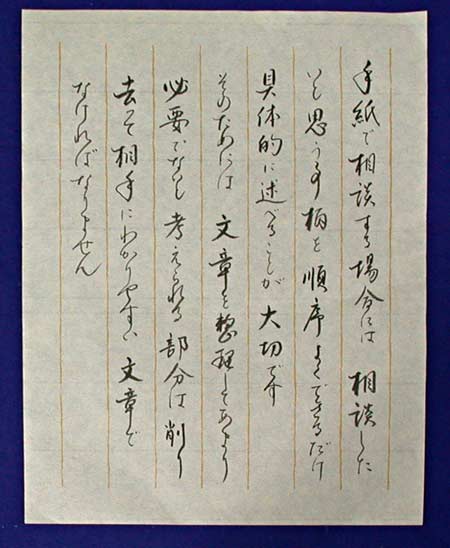 手紙で相談する場合には 相談した
いと思う事柄を順序よくできるだけ
具体的に述べることが大切です
そのためには 文章を整理してあまり
必要でないと考えられる部分は削り
去って相手にわかりやすい文章で
なければなりません